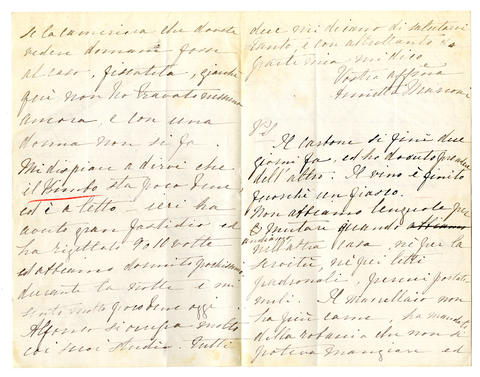 se la cameriera che dovete
vedere domani fosse
al caso, fissatela, giacchè
qui non ho trovato nessuna
ancora, e con una
donna non si fa.
Mi dispiace a dirvi che
il Bimbo sta poco bene,
ed è a letto. ieri ha
avuto gran fastidio ed
ha rigettato 9 o 10 volte
ed abbiamo dormito pochissimo
durante la notte e mi
sento molto poco bene oggi
Alfonso si occupa molto
coi suoi studi. Tutti
due mi dicono di salutarvi
tanto, e con altrettanto da
parte mia, mi dico
Vostra affma
Annietta Marconi
PS
Il carbone si finì due
giorni fa, ed ho dovuto prendere
dell'altro. Il vino è finito
fuorchè un fiasco.
Non abbiamo lenzuola per
mutare quando abbiamo
andiamo
nell'altra casa, nè per la
servitù, nè pei letti
padronali, perciò portate-
muli. Il macellaio non
ha più carne, ha mandato
della robaccia che non si
poteva mangiare ed